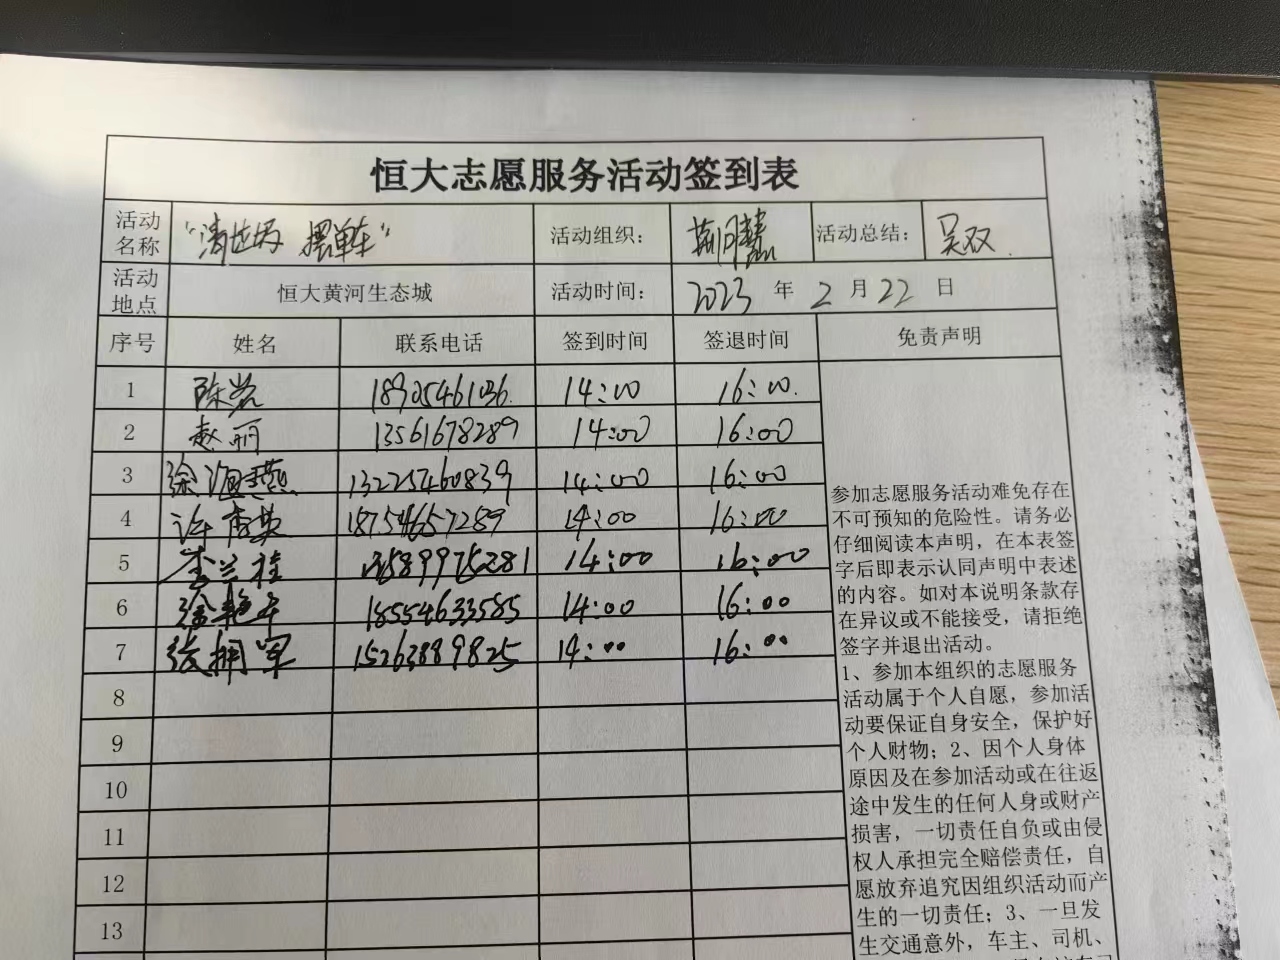 恒大志愿服务活动签到表
活动名称 "清垃圾 摆单车" 活动组织： 荆月慧 活动总结： 吴双
活动地点 恒大黄河生态城 活动时间： 2023 年 2 月 22 日
序号 姓名 联系电话 签到时间 签退时间 免责声明
1 陈岩 18905461036 14:00 16:00
2 赵丽 13561678289 14:00 16:00
3 徐海燕 13225460839 14:00 16:00
4 许秀英 18754657289 14:00 16:00
5 李兰桂 13589975281 14:00 16:00
6 徐艳 18554633585 14:00 16:00
7 张拥军 15263889825 14:00 16:00
8
9
10
11
12
13
参加志愿服务活动难免存在
不可预知的危险性。请务必
仔细阅读本声明，在本表签
字后即表示认同声明中表述
的内容。如对本说明条款存
在异议或不能接受，请拒绝
签字并退出活动。
1、参加本组织的志愿服务
活动属于个人自愿，参加活
动要保证自身安全，保护好
个人财物；2、因个人身体
原因及在参加活动或在往返
途中发生的任何人身或财产
损害，一切责任自负或由侵
权人承担完全赔偿责任，自
愿放弃追究因组织活动而产
生的一切责任；3、一旦发
生交通意外，车主、司机、